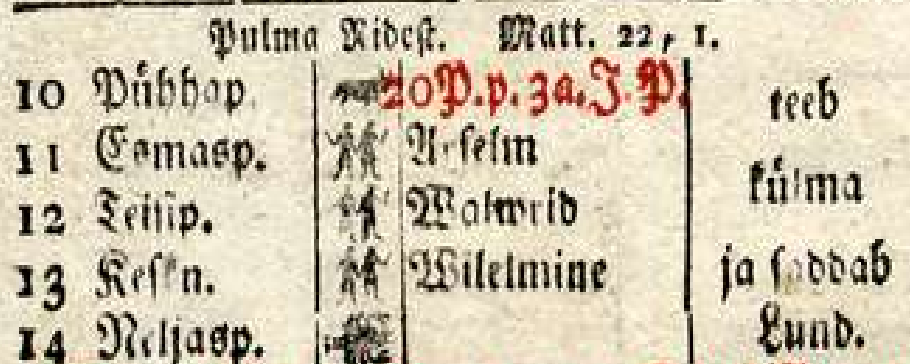 Pulma Ridest. Matt. 22, 1.
10 Pühhap. 20 P. p. 3a. J. P. teeb
11 Esmasp. Anselm külma
12 Teisip. Walwrid
13 Keskn. Wilelmine ja saddab
14 Neljasp. Lund.